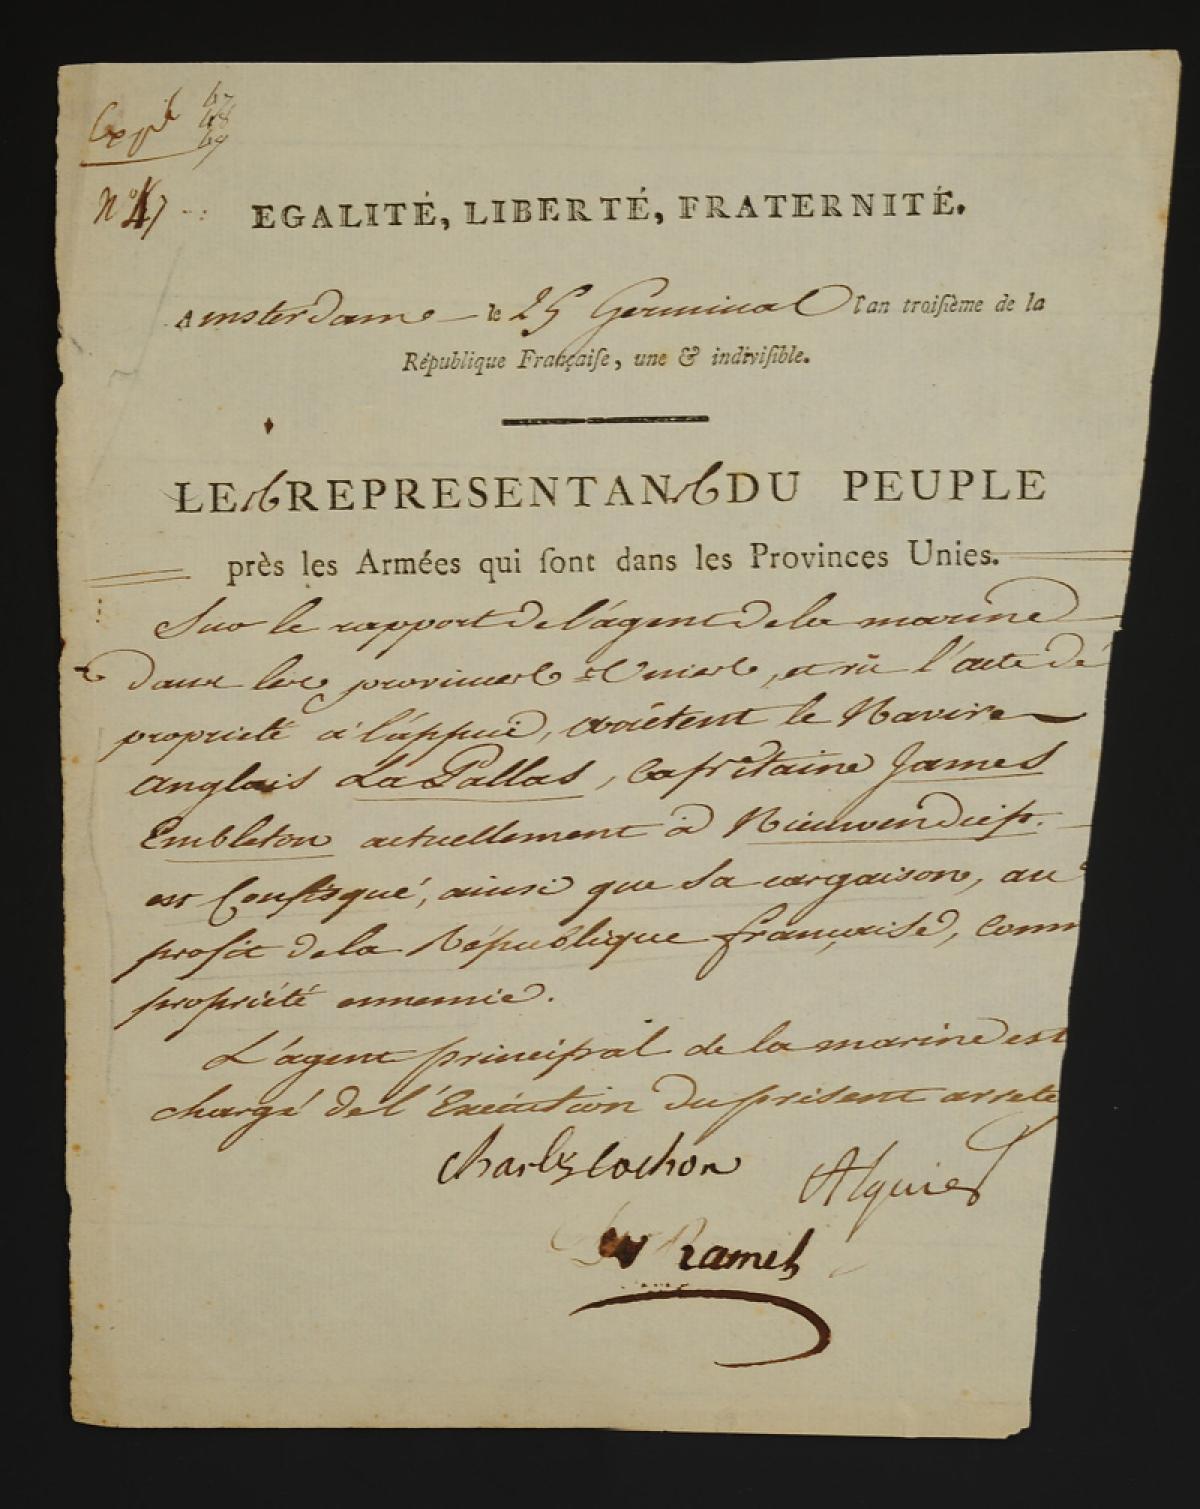 Expé 47
48
49
N° 47
EGALITÉ, LIBERTÉ, FRATERNITÉ.
Amsterdame le 25 Germinal l'an troiſième de la
République Françaiſe, une & indiviſible.
LEs REPRESENTANs DU PEUPLE
près les Armées qui ſont dans les Provinces Unies.
Sur le rapport de l'ágent de la marine
dans les provinces-Unies, et vû l'acte dé
propriété à l'áppui, arrêtent le Navire
anglais La Pallas, Capitaine James
Embleton actuellement à Nieuwendiep.
est Confisqué, ainsi que sa cargaison, au
profit de la République française, comm
propriété ennemie.
L'ágent principal de la marine est
chargé de l'Exécution du présent arrete
Charles Cochon Alquier
Ramel